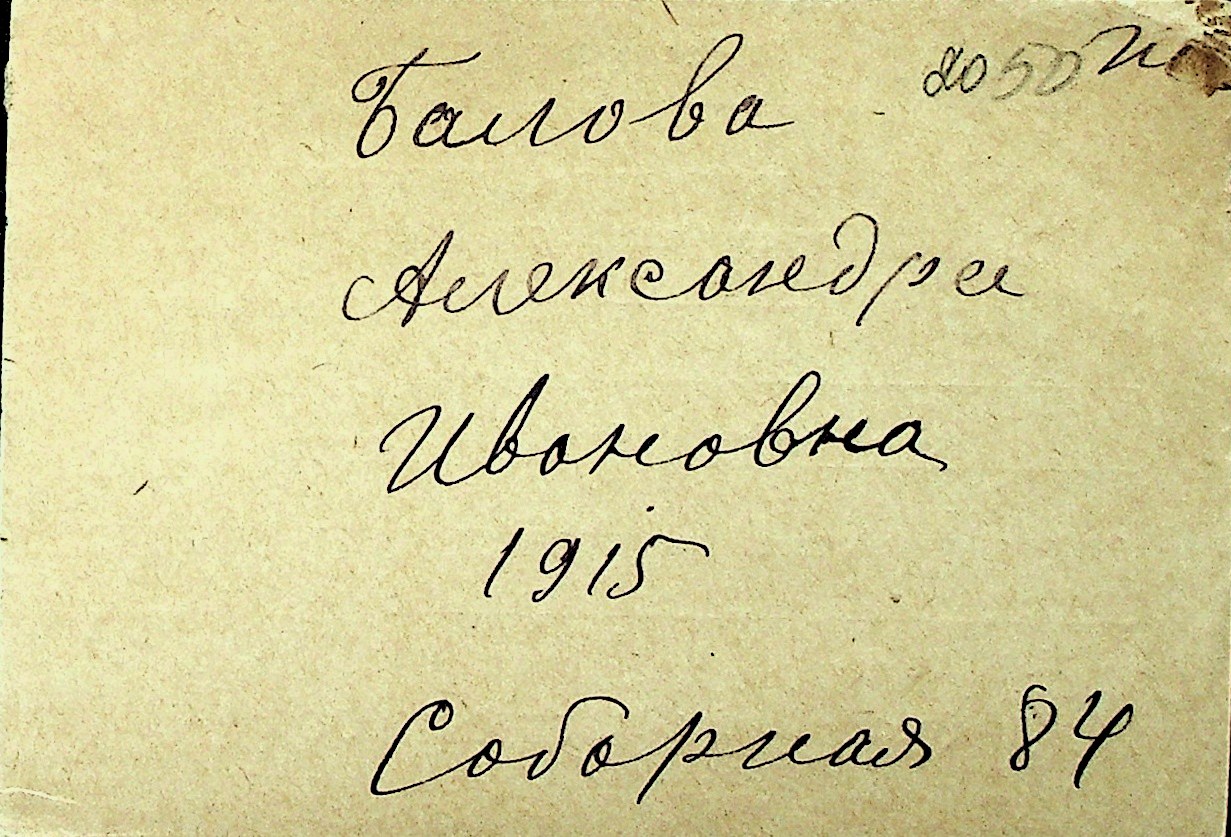 2050
Балова
Александра
Ивановна
1915
Соборная 84